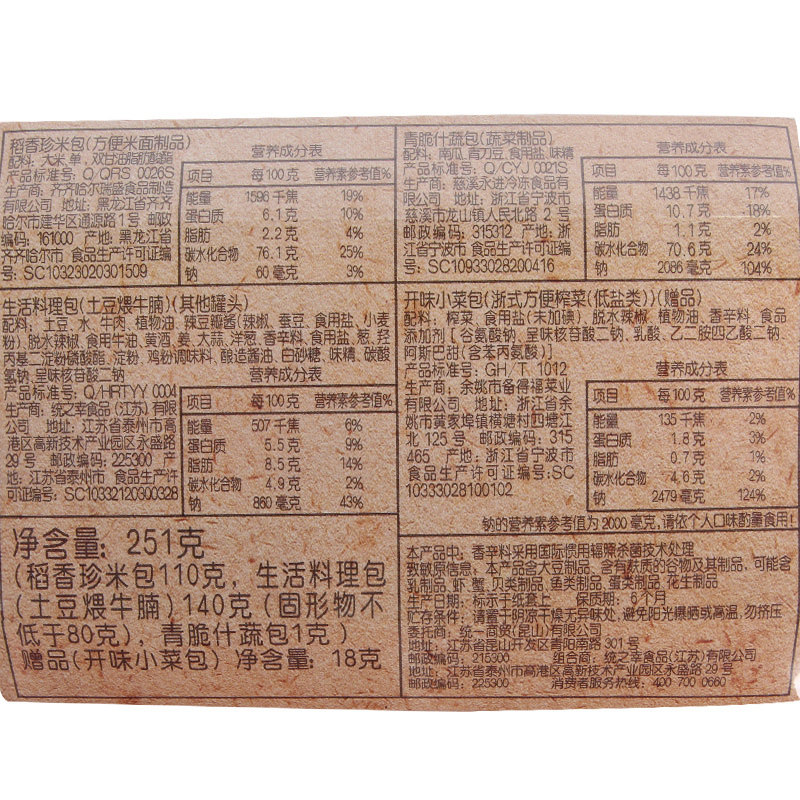 稻香珍米包(方便米面制品)
配料: 大米、单, 双甘油脂肪酸酯
产品标准号: Q/QRS 0026S
生产商: 齐齐哈尔瑞盛食品制造
有限公司 地址: 黑龙江省齐齐
哈尔市建华区通源路1号 邮政
编码: 161000 产地: 黑龙江省
齐齐哈尔市 食品生产许可证编
号: SC10323020301509
营养成分表
项目 每100克 营养素参考值%
能量 1596 千焦 19%
蛋白质 6.1 克 10%
脂肪 2.2 克 4%
碳水化合物 76.1 克 25%
钠 60 毫克 3%
青脆什蔬包(蔬菜制品)
配料: 南瓜, 青刀豆, 食用盐, 味精
产品标准号: Q/CYJ 0021S
生产商: 慈溪永进冷冻食品有
限公司 地址: 浙江省宁波市
慈溪市龙山镇人民北路 2 号
邮政编码: 315312 产地: 浙
江省宁波市 食品生产许可证编
号: SC10933028200416
营养成分表
项目 每100克 营养素参考值%
能量 1438 千焦 17%
蛋白质 10.7 克 18%
脂肪 1.1 克 2%
碳水化合物 70.6 克 24%
钠 2086 毫克 104%
生活料理包(土豆煨牛腩)(其他罐头)
配料: 土豆, 水, 牛肉, 植物油, 辣豆瓣酱(辣椒, 蚕豆, 食用盐, 小麦
粉), 脱水辣椒, 食用牛油, 黄酒, 姜, 大蒜, 洋葱, 香辛料, 食用盐, 葱, 羟
丙基二淀粉磷酸酯, 淀粉, 鸡粉调味料, 酿造酱油, 白砂糖, 味精, 碳酸
氢钠, 呈味核苷酸二钠
产品标准号: Q/HRTYY 0004
生产商: 统之幸食品(江苏)有限
公司 地址: 江苏省泰州市高
港区高新技术产业园区永盛路
29 号 邮政编码: 225300 产
地: 江苏省泰州市 食品生产许
可证编号: SC10332120300328
营养成分表
项目 每100克 营养素参考值%
能量 507 千焦 6%
蛋白质 5.5 克 9%
脂肪 8.5 克 14%
碳水化合物 4.9 克 2%
钠 860 毫克 43%
开味小菜包(浙式方便榨菜(低盐类))(赠品)
配料: 榨菜, 食用盐(未加碘), 脱水辣椒, 植物油, 香辛料, 食品
添加剂 [谷氨酸钠, 呈味核苷酸二钠, 乳酸, 乙二胺四乙酸二钠,
阿斯巴甜(含苯丙氨酸)]
产品标准号: GH/T 1012
生产商: 余姚市备得福菜业
有限公司 地址: 浙江省余
姚市黄家埠镇横塘村四塘江
北 125 号 邮政编码: 315
465 产地: 浙江省宁波市
食品生产许可证编号:SC
10333028100102
营养成分表
项目 每100克 营养素参考值%
能量 135 千焦 2%
蛋白质 1.8 克 3%
脂肪 0.7 克 1%
碳水化合物 4.6 克 2%
钠 2479 毫克 124%
钠的营养素参考值为 2000 毫克,请依个人口味酌量食用!
净含量: 251克
(稻香珍米包110克, 生活料理包
(土豆煨牛腩)140克(固形物不
低于80克), 青脆什蔬包1克)
赠品(开味小菜包) 净含量: 18克
本产品中, 香辛料采用国际惯用辐照杀菌技术处理
致敏原信息: 本产品含大豆制品, 含有麸质的谷物及其制品, 可能含
乳制品, 虾, 蟹, 贝类制品, 鱼类制品, 蛋类制品, 花生制品
生产日期: 标示于纸套上 保质期: 6个月
贮存条件: 请置于阴凉干燥无异味处, 避免阳光曝晒或高温, 勿挤压
委托商: 统一商贸(昆山)有限公司
地址: 江苏省昆山开发区青阳南路 301号
邮政编码: 215306 组合商: 统之幸食品(江苏)有限公司
地址: 江苏省泰州市高港区高新技术产业园区永盛路 29 号
邮政编码: 225300 消费者服务热线: 400 700 0660